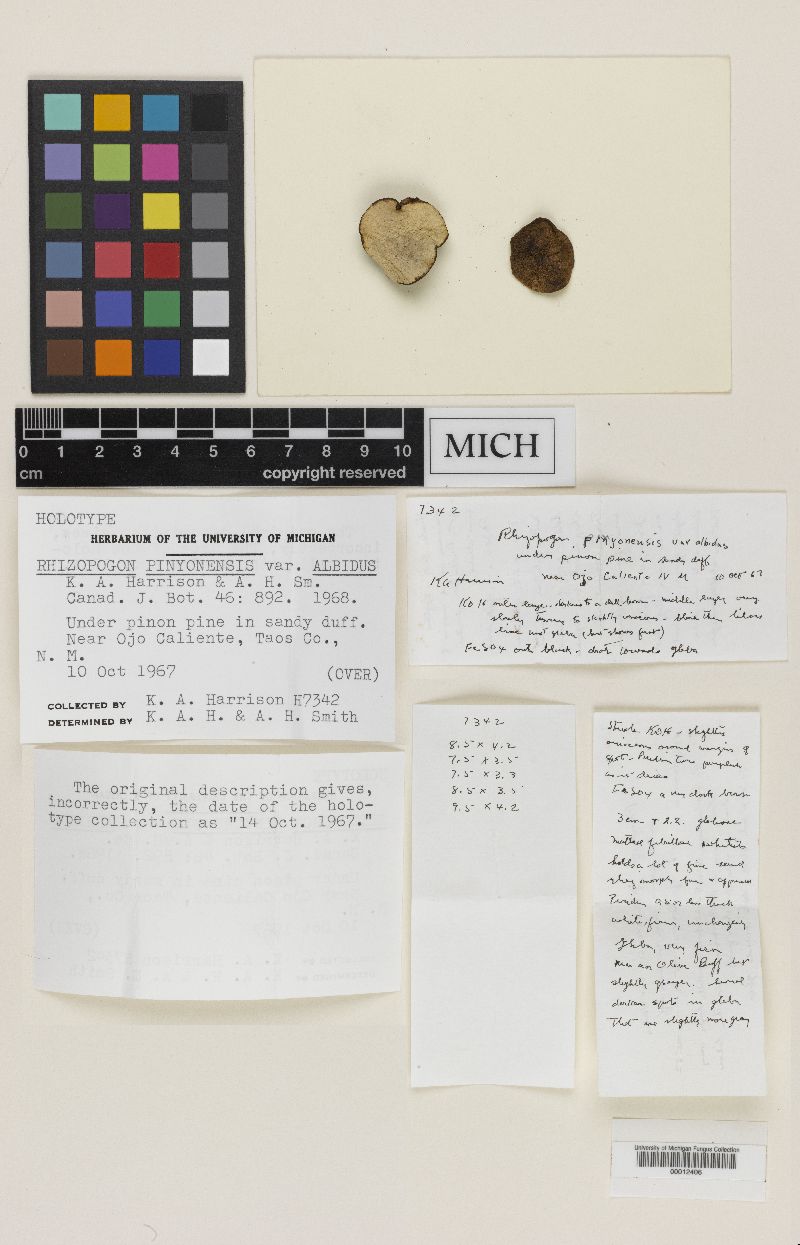 0 1 2 3 4 5 6 7 8 9 10
cm copyright reserved
MICH
HOLOTYPE
HERBARIUM OF THE UNIVERSITY OF MICHIGAN
RHIZOPOGON PINYONENSIS var. ALBIDUS
K. A. Harrison & A. H. Sm.
Canad. J. Bot. 46: 892. 1968.
Under pinon pine in sandy duff.
Near Ojo Caliente, Taos Co.,
N. M.
10 Oct 1967 (OVER)
COLLECTED BY K. A. Harrison H7342
DETERMINED BY K. A. H. & A. H. Smith
The original description gives,
incorrectly, the date of the holo-
type collection as "14 Oct. 1967."
7342
Rhizopogon pinyonensis var albidus
under pinon pine in sandy duff
near Ojo Caliente N M 10 Oct 67
KOH
slowly
FeSO4 black - dark towards gleba
7342
8.5 x 4.2
7.5 x 3.5
7.5 x 3.3
8.5 x 3.5
9.5 x 4.2
KOH - slightly
around margins of
spot -
FeSO4 a very dark brown
3 cm globose
matted fibrillose
holds a lot of fine sand
white, firm, unchanging
Gleba, very firm
Olive Buff but
slightly grayer.
darker spots in gleba
that are slightly more gray
University of Michigan Fungus Collection
00012406